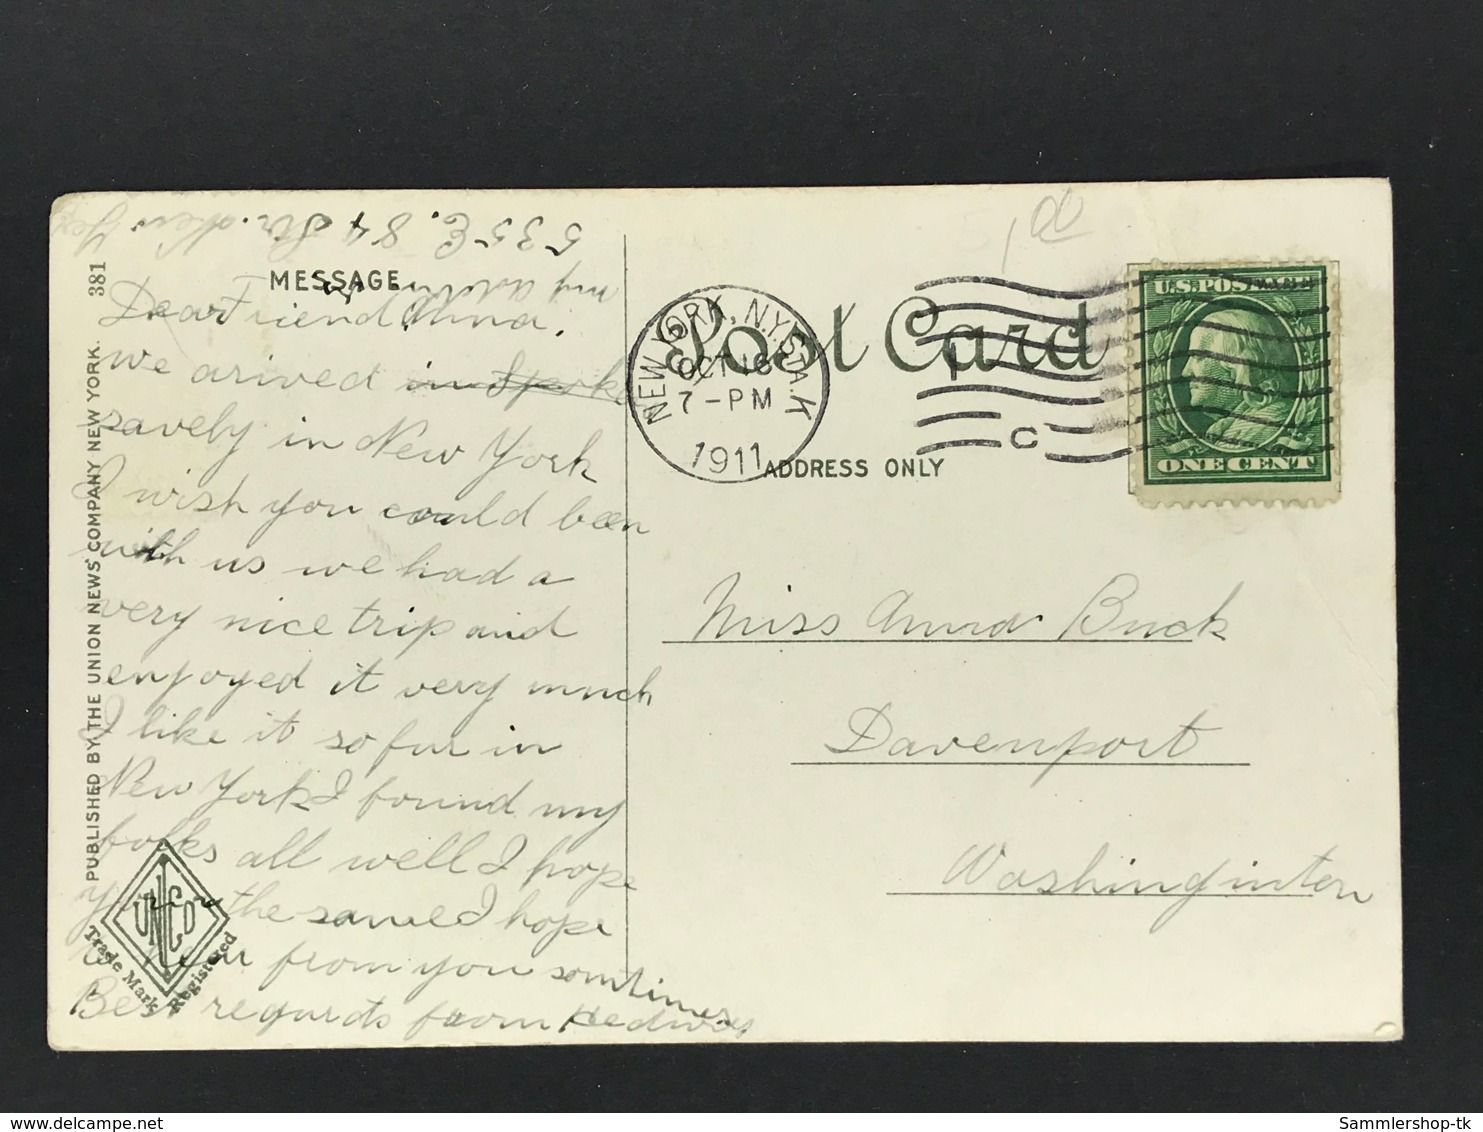 535 E. 84 Str. New Yor
my address
MESSAGE
Dear Friend Anna.
we arived in Spok
savely in New York
I wish you could been
with us we had a
very nice trip and
enjoyed it very much
I like it so fur in
New York I found my
folks all well I hope
you the same I hope
to hear from you somtimes
Best regards from Hedwig
381
PUBLISHED BY THE UNION NEWS COMPANY NEW YORK.
UNCO
Trade Mark Registered
1,00
Post Card
NEW YORK, N.Y. STA. K
OCT 16
7-PM
1911
C
U.S. POSTAGE
ONE CENT
ADDRESS ONLY
Miss Anna Buck
Davenport
Washinginton
Sammlershop-tk